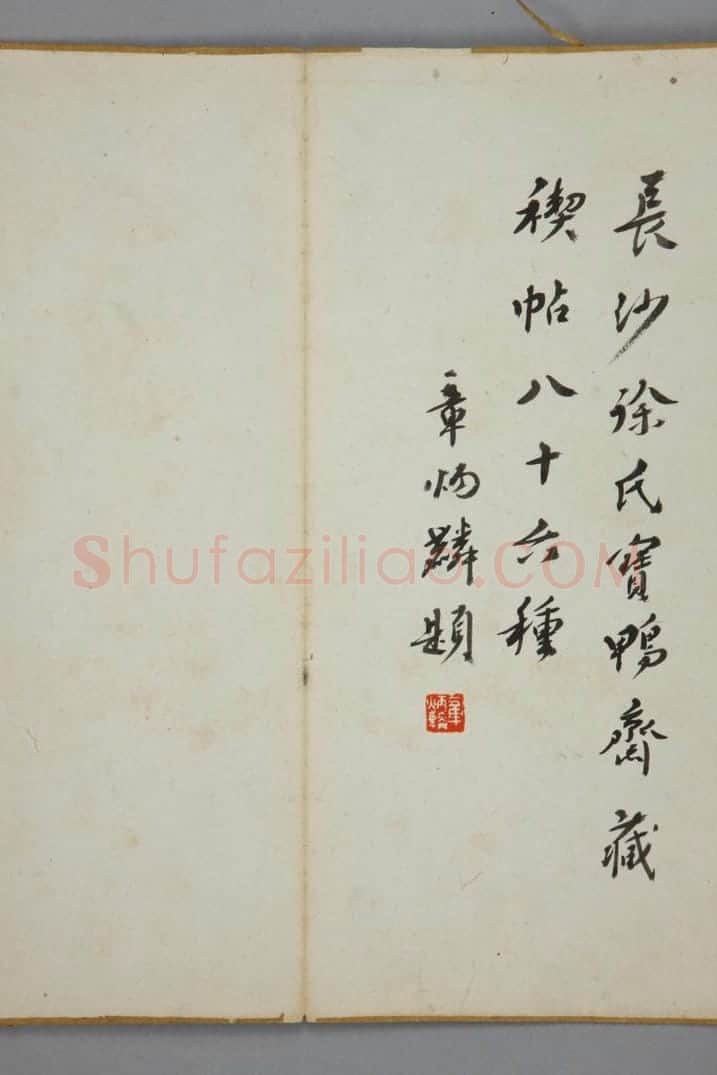 長沙徐氏寶鴨齋藏
禊帖八十六種
章炳麟題
章炳麟
Shufaziliao.COM